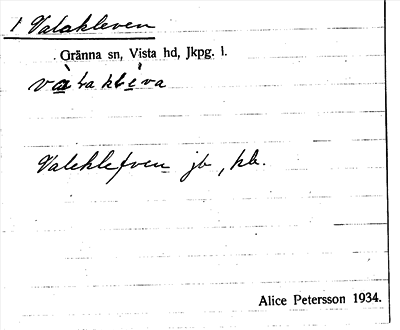 1 Valakleven
Gränna sn, Vista hd, Jkpg. l.
Valeklefven jb, kb.
Alice Petersson 1934.